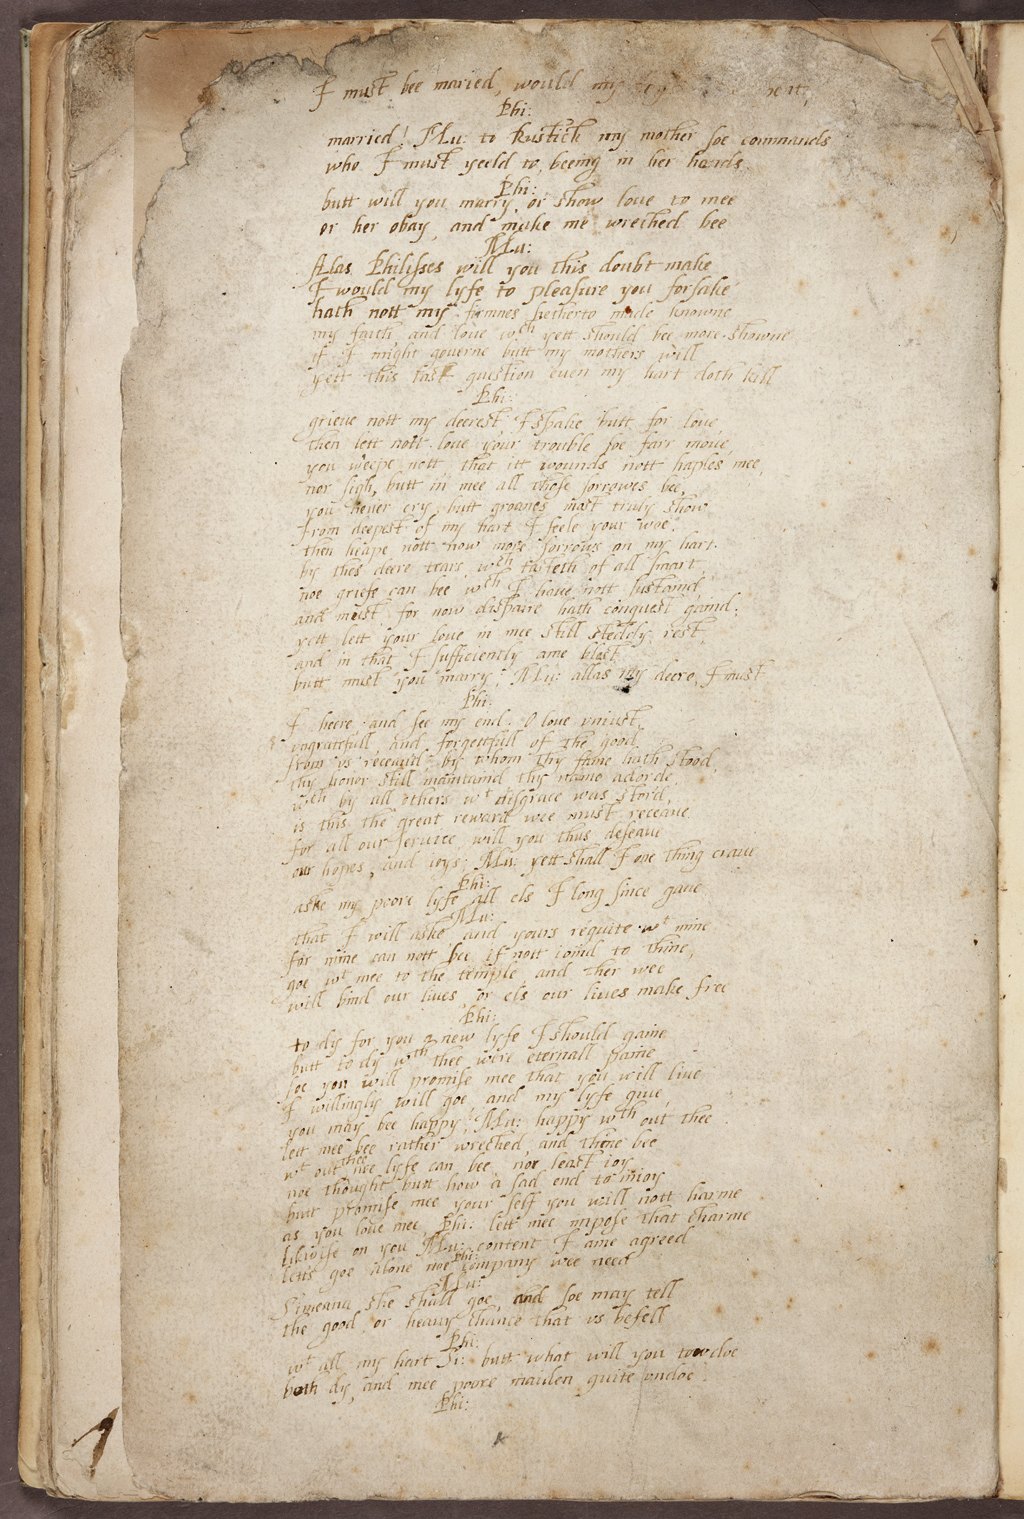 I must bee maried, would my
Phi:
married! Mu: to Rustick my mother soe commands
who I must yeeld to, beeing in her hands
Phi:
butt will you marry, or show love to mee
or her obay, and make me wreched bee
Mu:
Alas Philisses will you this doubt make
I would my lyfe to pleasure you forsake
hath nott my firmnes hetherto made knowne
my faith, and love wch yett should bee more showne
if I might governe butt my mothers will
yett this last question even my hart doth kill
Phi:
grieve nott my deerest, I spake butt for love
then lett nott love your trouble soe farr move,
you weepe nott, that itt wounds nott haples mee,
nor sigh, butt in mee all those sorrowes bee,
you never cry butt groanes most truly show
from deepest of my hart I feele your woe.
then heape nott now more sorrows on my hart.
by thes deere tears, wch tasteth of all smart,
noe griefe can bee wch I have nott sustaind,
and must, for now dispaire hath conquest gaind,
yett lett your love in mee still stedfly rest,
and in that I sufficiently ame blest,
butt must you marry, Mu: allas my deere, I must
Phi:
I heere and see my end. O love uniust,
ungratefull, and forgettfull of the good
from us receaud, by whom thy fame hath stood,
thy honor still maintaind thy name adorde,
wch by all others wt disgrace was stord,
is this the great reward wee must receave
for all our service, will you thus deseave
our hopes, and ioys: Mu: yett shall I one thing crave
Phi:
aske my poore lyfe all els I long since gave
Mu:
that I will aske and yours requite wt mine
for mine can nott bee if nott ioind to thine,
goe wt mee to the temple, and ther wee
will bind our lives or els our lives make free
Phi:
to dy for you a new lyfe I should gaine
butt to dy wth thee were eternall paine
soe you will promise mee that you will live
I willingly will goe, and my lyfe give,
you may bee happy, Mu: happy wth out thee
lett mee bee rather wreched, and thine bee
wt out thee noe lyfe can bee nor least ioy
noe thought butt how a sad end to inioy
butt promise mee your self you will nott harme
as you love mee, Phi: lett mee impose that charme
likwise on you, Mu: content I ame agreed
Phi:
letts goe alone noe company wee need
Mu:
Simeana she shall goe, and soe may tell
the good, or heavy chance that us befell
Phi:
wt all my hart Si: butt what will you tow doe
both dy, and mee poore maiden quite undoe
Phi: